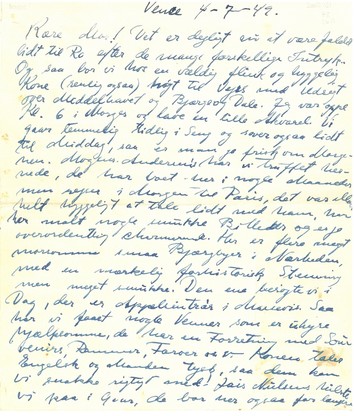 Vence 4-7-49.
Kære Mor! Det er dejligt nu at være faldet
lidt til Ro efter de mange forskellige Indtryk.
Og saa bor vi hos en vældig flink og hyggelig
Kone (renlig ogsaa) højt til Vejrs med Udsigt
over Middelhavet og Bjerg og Dale. Jeg var oppe
Kl. 6 i Morges og lave en lille Akvarel. Vi
gaar temmelig tidlig i Seng og sover ogsaa lidt
til Middag, saa er man jo frisk om Morge-
nen. Mogens Andersen har vi truffet her-
nede, de har boet her i nogle Maaneder
men rejser i Morgen til Paris, det var ellers
helt hyggeligt at tale lidt med ham, han
har malt nogle smukke Billeder og er jo
overordentlig charmerende. Her er flere meget
morsomme smaa Bjergbyer i Nærheden,
med en mærkelig forhistorisk Stemning
men meget smukke. Den ene besøgte vi i
Dag, der er
har vi faaet nogle Venner som er uhyre
hjælpsomme, de har en Forretning med Sou-
venirs, Rammer, Farver o.s.v. Konen taler
Engelsk og Manden Tysk, saa dem kan
vi snakke rigtigt med. Nielsens hilste
vi paa i Gaar, de bor her ogsaa for længere